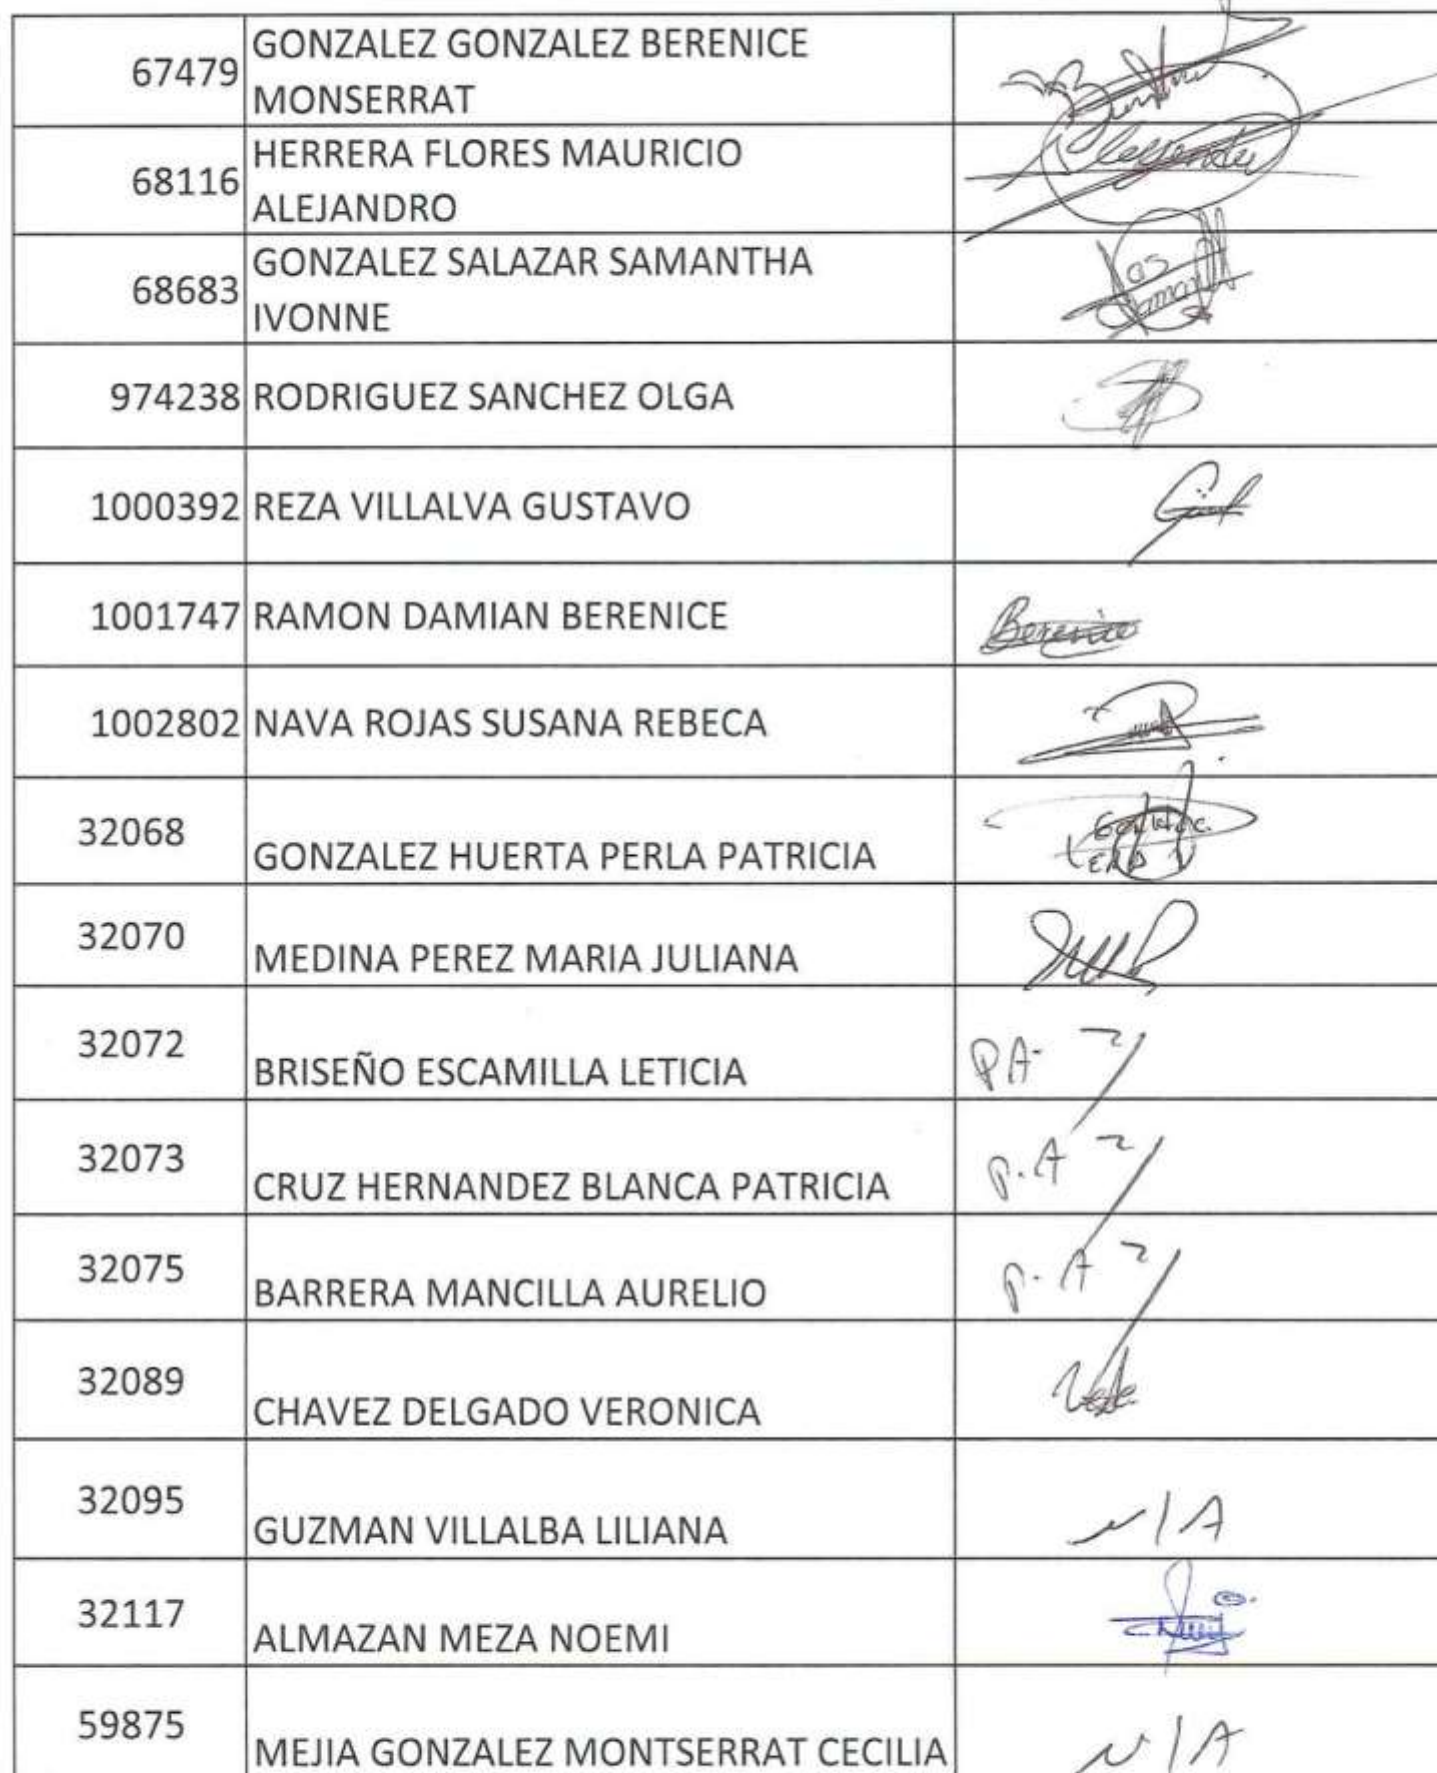 67479 GONZALEZ GONZALEZ BERENICE
MONSERRAT
68116 HERRERA FLORES MAURICIO
ALEJANDRO
68683 GONZALEZ SALAZAR SAMANTHA
IVONNE
974238 RODRIGUEZ SANCHEZ OLGA
1000392 REZA VILLALVA GUSTAVO
1001747 RAMON DAMIAN BERENICE Berenice
1002802 NAVA ROJAS SUSANA REBECA
32068 GONZALEZ HUERTA PERLA PATRICIA
32070 MEDINA PEREZ MARIA JULIANA
32072 BRISEÑO ESCAMILLA LETICIA P A-
32073 CRUZ HERNANDEZ BLANCA PATRICIA P. A
32075 BARRERA MANCILLA AURELIO P. A
32089 CHAVEZ DELGADO VERONICA
32095 GUZMAN VILLALBA LILIANA N/A
32117 ALMAZAN MEZA NOEMI
59875 MEJIA GONZALEZ MONTSERRAT CECILIA N/A